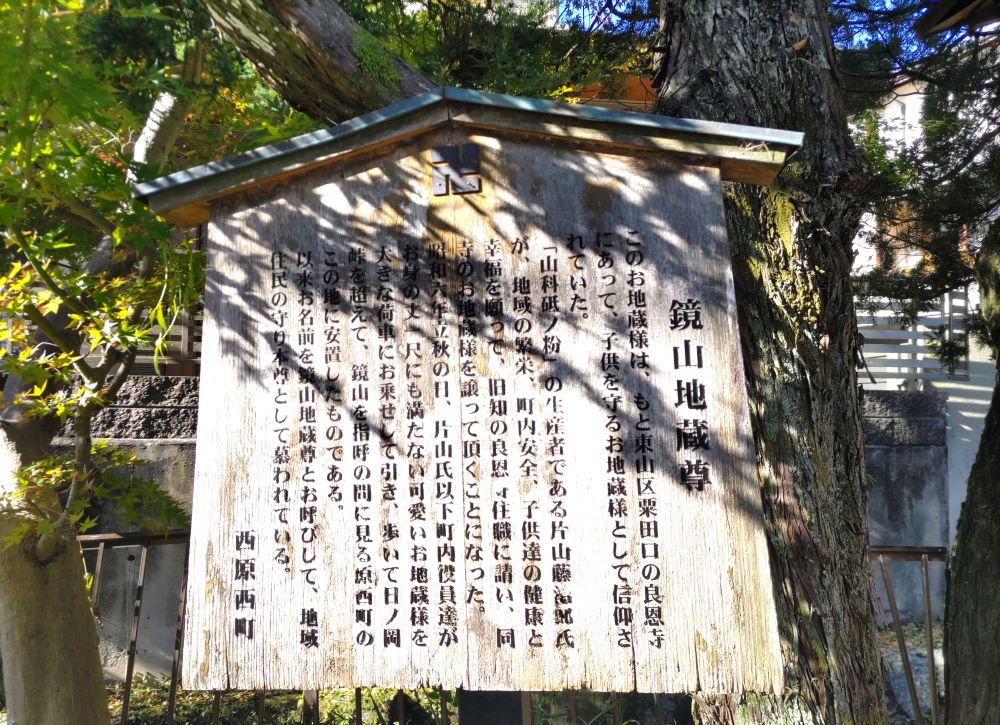 卍
鏡山地蔵尊
このお地蔵様は、もと東山区粟田口の良恩寺
にあって、子供を守るお地蔵様として信仰さ
れていた。
「山科砥ノ粉」の生産者である片山藤治郎氏
が、地域の繁栄、町内安全、子供達の健康と
幸福を願って、旧知の良恩寺住職に請い、同
寺のお地蔵様を譲って頂くことになった。
昭和六年立秋の日、片山氏以下町内役員達が
お身の丈一尺にも満たない可愛いお地蔵様を
大きな荷車にお乗せして引き、歩いて日ノ岡
峠を超えて、鏡山を指呼の間に見る原西町の
この地に安置したものである。
以来お名前を鏡山地蔵尊とお呼びして、地域
住民の守り本尊として慕われている。
西原西町